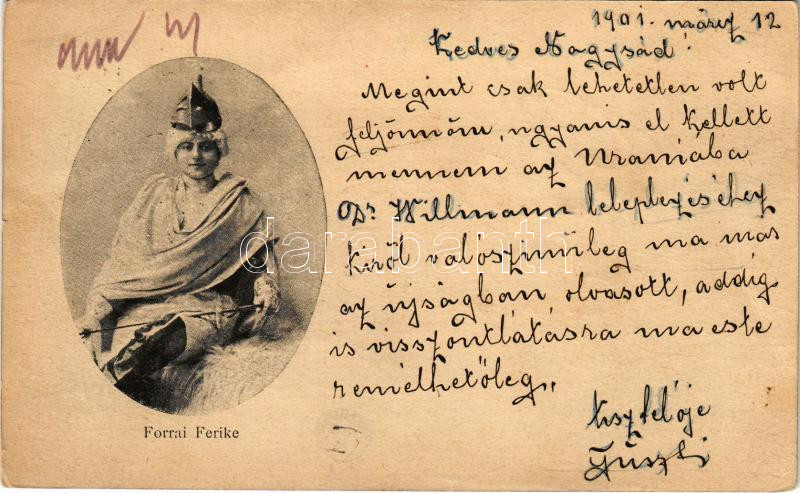 1901. márcz 12
Kedves Nagysád!
Megint csak lehetetlen volt
feljönnöm, ugyanis el kellett
mennem az Urániába
Dr Willmann leleplezéséhez
kiről valószinűleg ma már
az újságban olvasott, addig
is viszontlátásra ma este
remélhetőleg.
tisztelője
darabanth
Forrai Ferike